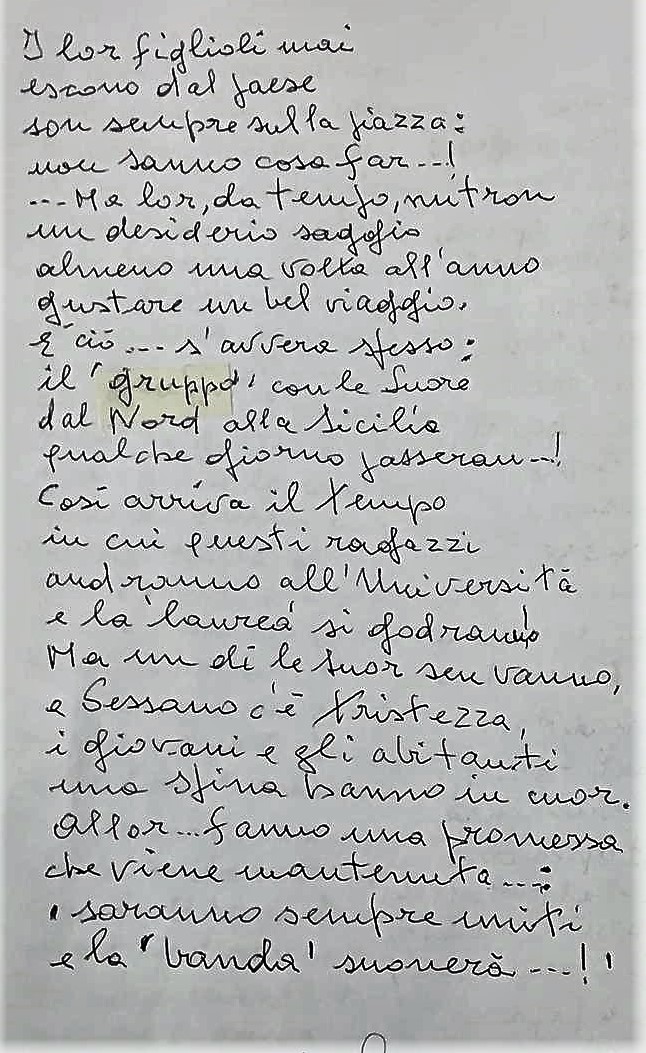 I lor figlioli mai
escono dal paese
son sempre sulla piazza:
non sanno cosa far...!
...Ma lor, da tempo, nutron
un desiderio saggio
almeno una volta all'anno
gustare un bel viaggio.
E ciò... s'avvera spesso:
il 'gruppo' con le Suore
dal Nord alla Sicilia
qualche giorno passeran...!
Così arriva il tempo
in cui questi ragazzi
andranno all'Università
e la 'laurea' si godranno!
Ma un dì le Suor sen vanno,
a Sessano c'è tristezza,
i giovani e gli abitanti
una spina hanno in cuor.
Allor... fanno una promessa
che viene mantenuta...:
'saranno sempre uniti
e la 'banda' suonerà...!'